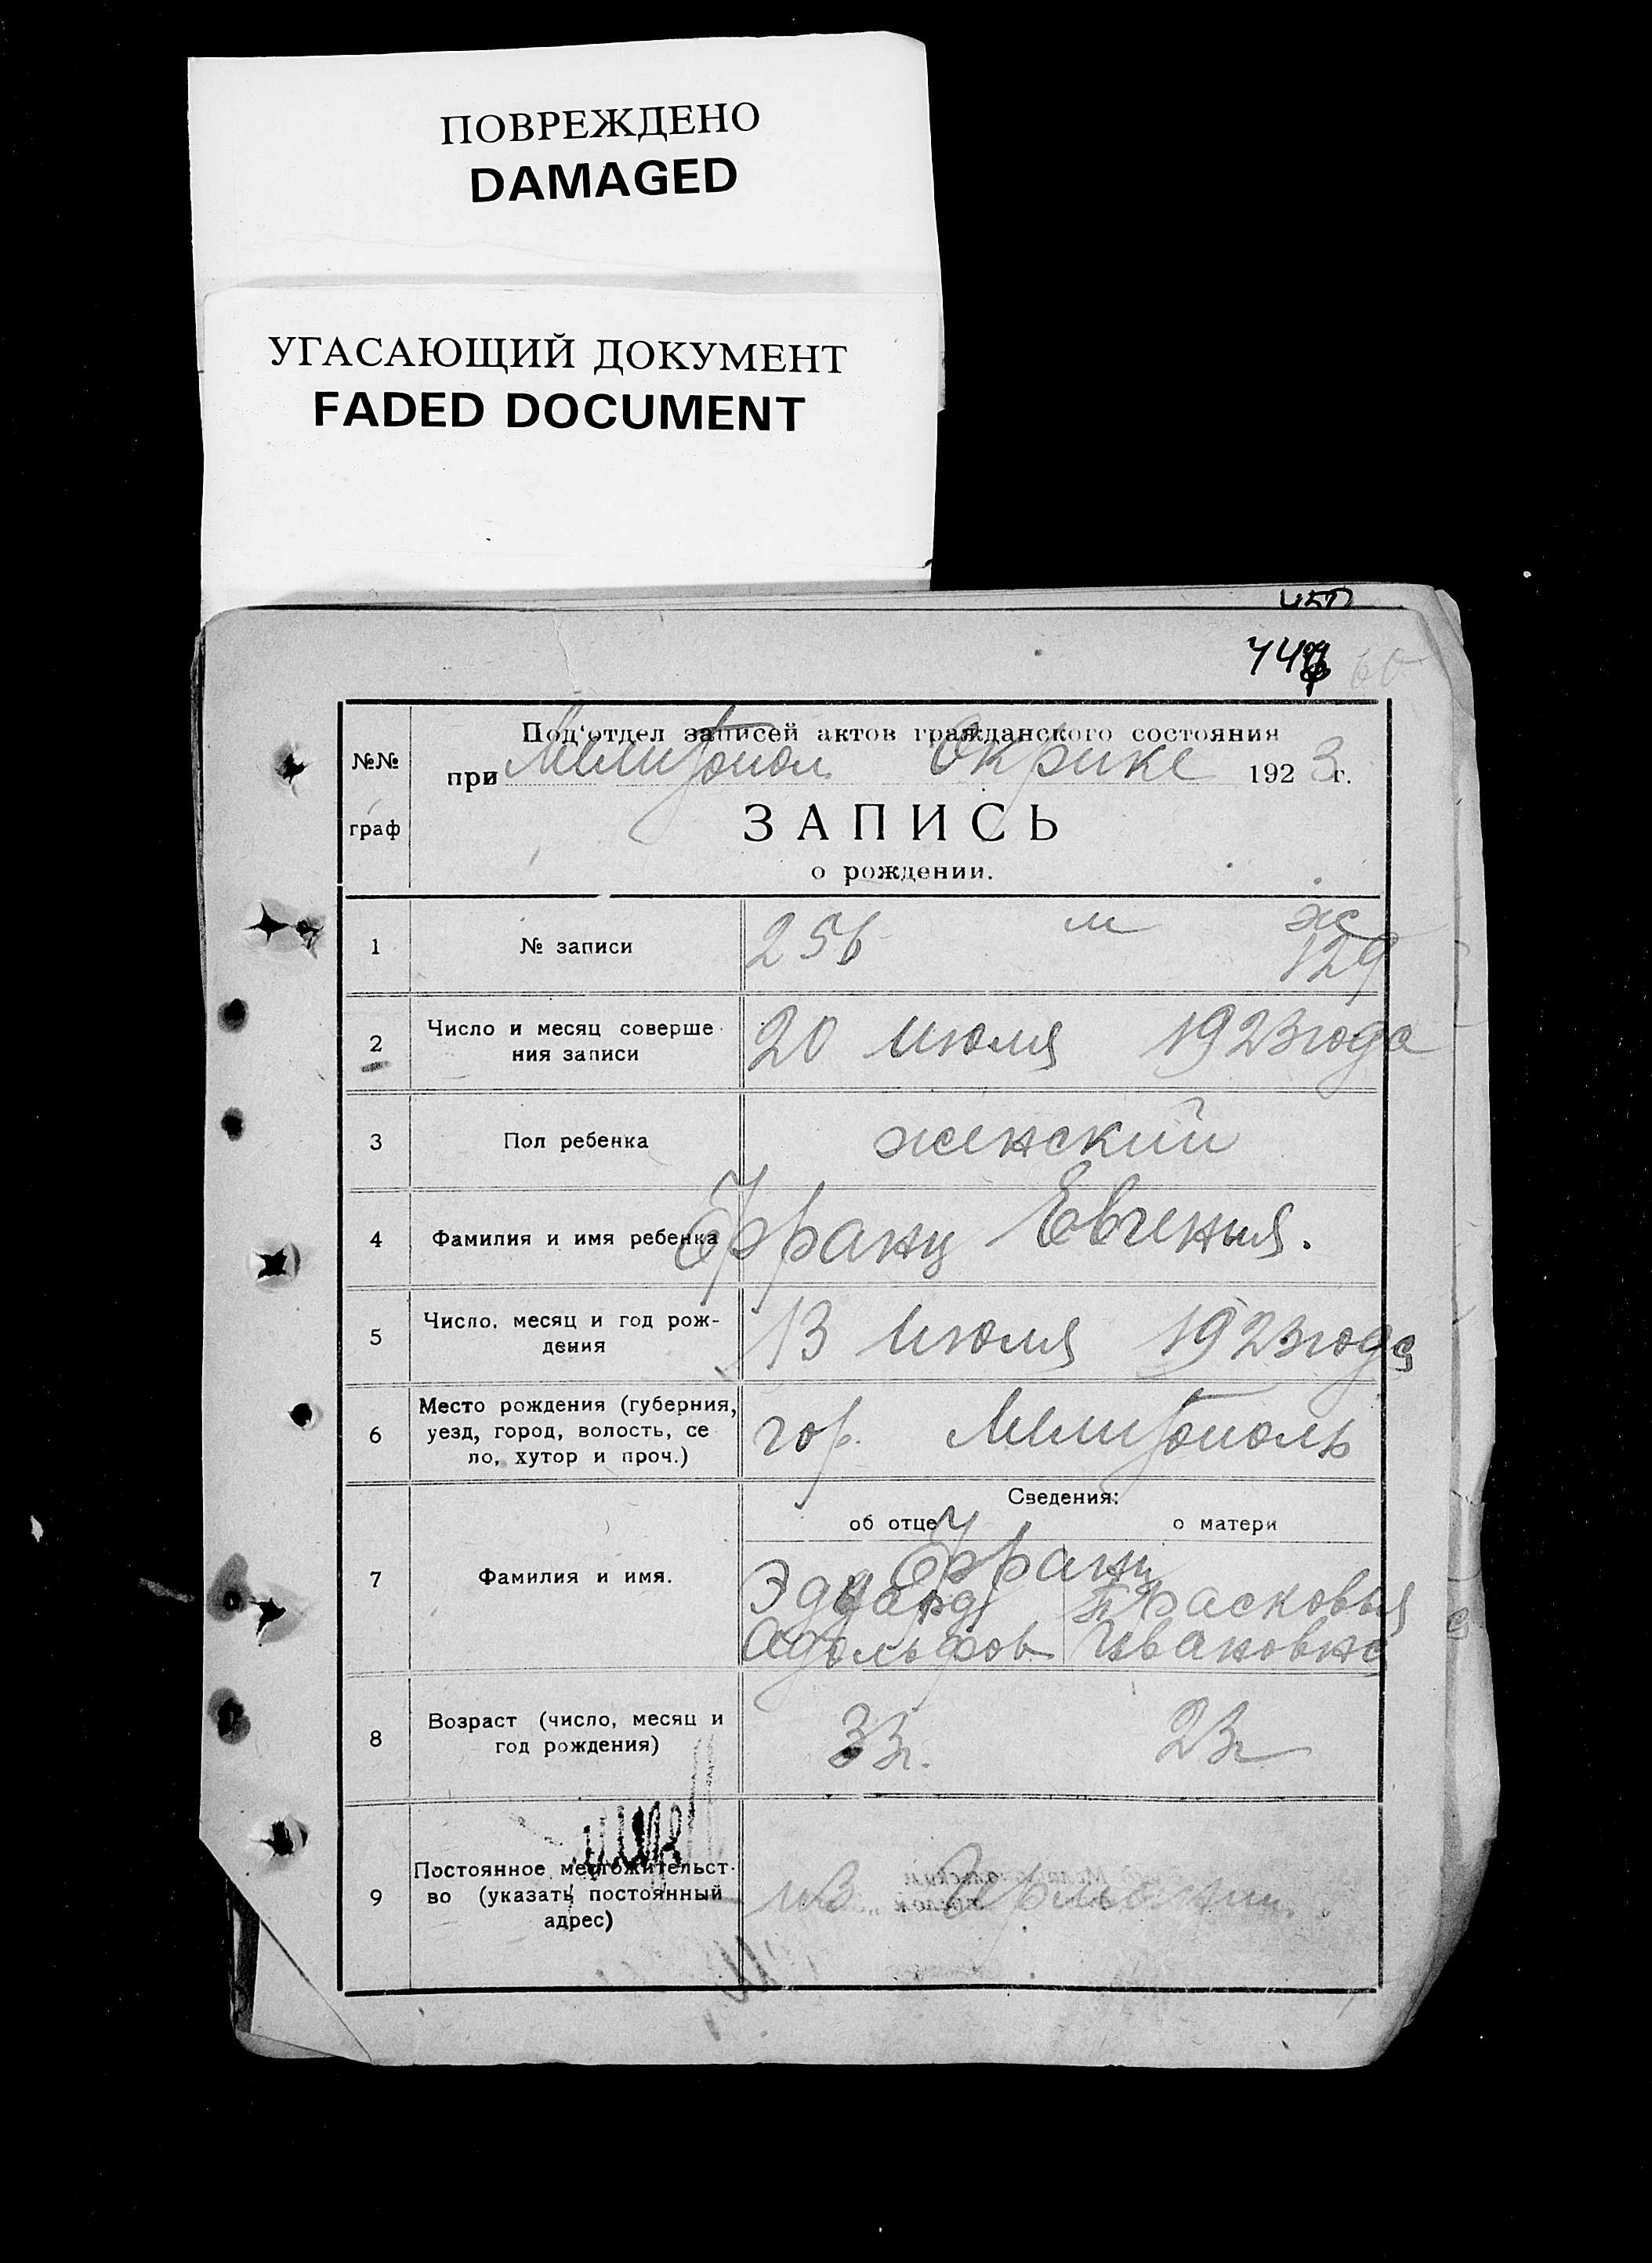 ПОВРЕЖДЕНО
DAMAGED
УГАСАЮЩИЙ ДОКУМЕНТ
FADED DOCUMENT
450
60
№№ граф
Под'отдел записей актов гражданского состояния
при Мелитопол. Окрике 1923 г.
ЗАПИСЬ
о рождении.
1 № записи 256 м ж
129
2 Число и месяц соверше
ния записи 20 июля 1923 года
3 Пол ребенка женский
4 Фамилия и имя ребенка Франц Евгения.
5 Число, месяц и год рож-
дения 13 июля 1923 года
6 Место рождения (губерния,
уезд, город, волость, се
ло, хутор и проч.) гор. Мелитополь
Сведения:
об отце о матери
7 Фамилия и имя. Франц
Эдуард Прасковья
Адольфов Ивановна
8 Возраст (число, месяц и
год рождения) 33 г. 23 г
9 Постоянное местожительст
во (указать постоянный
адрес)